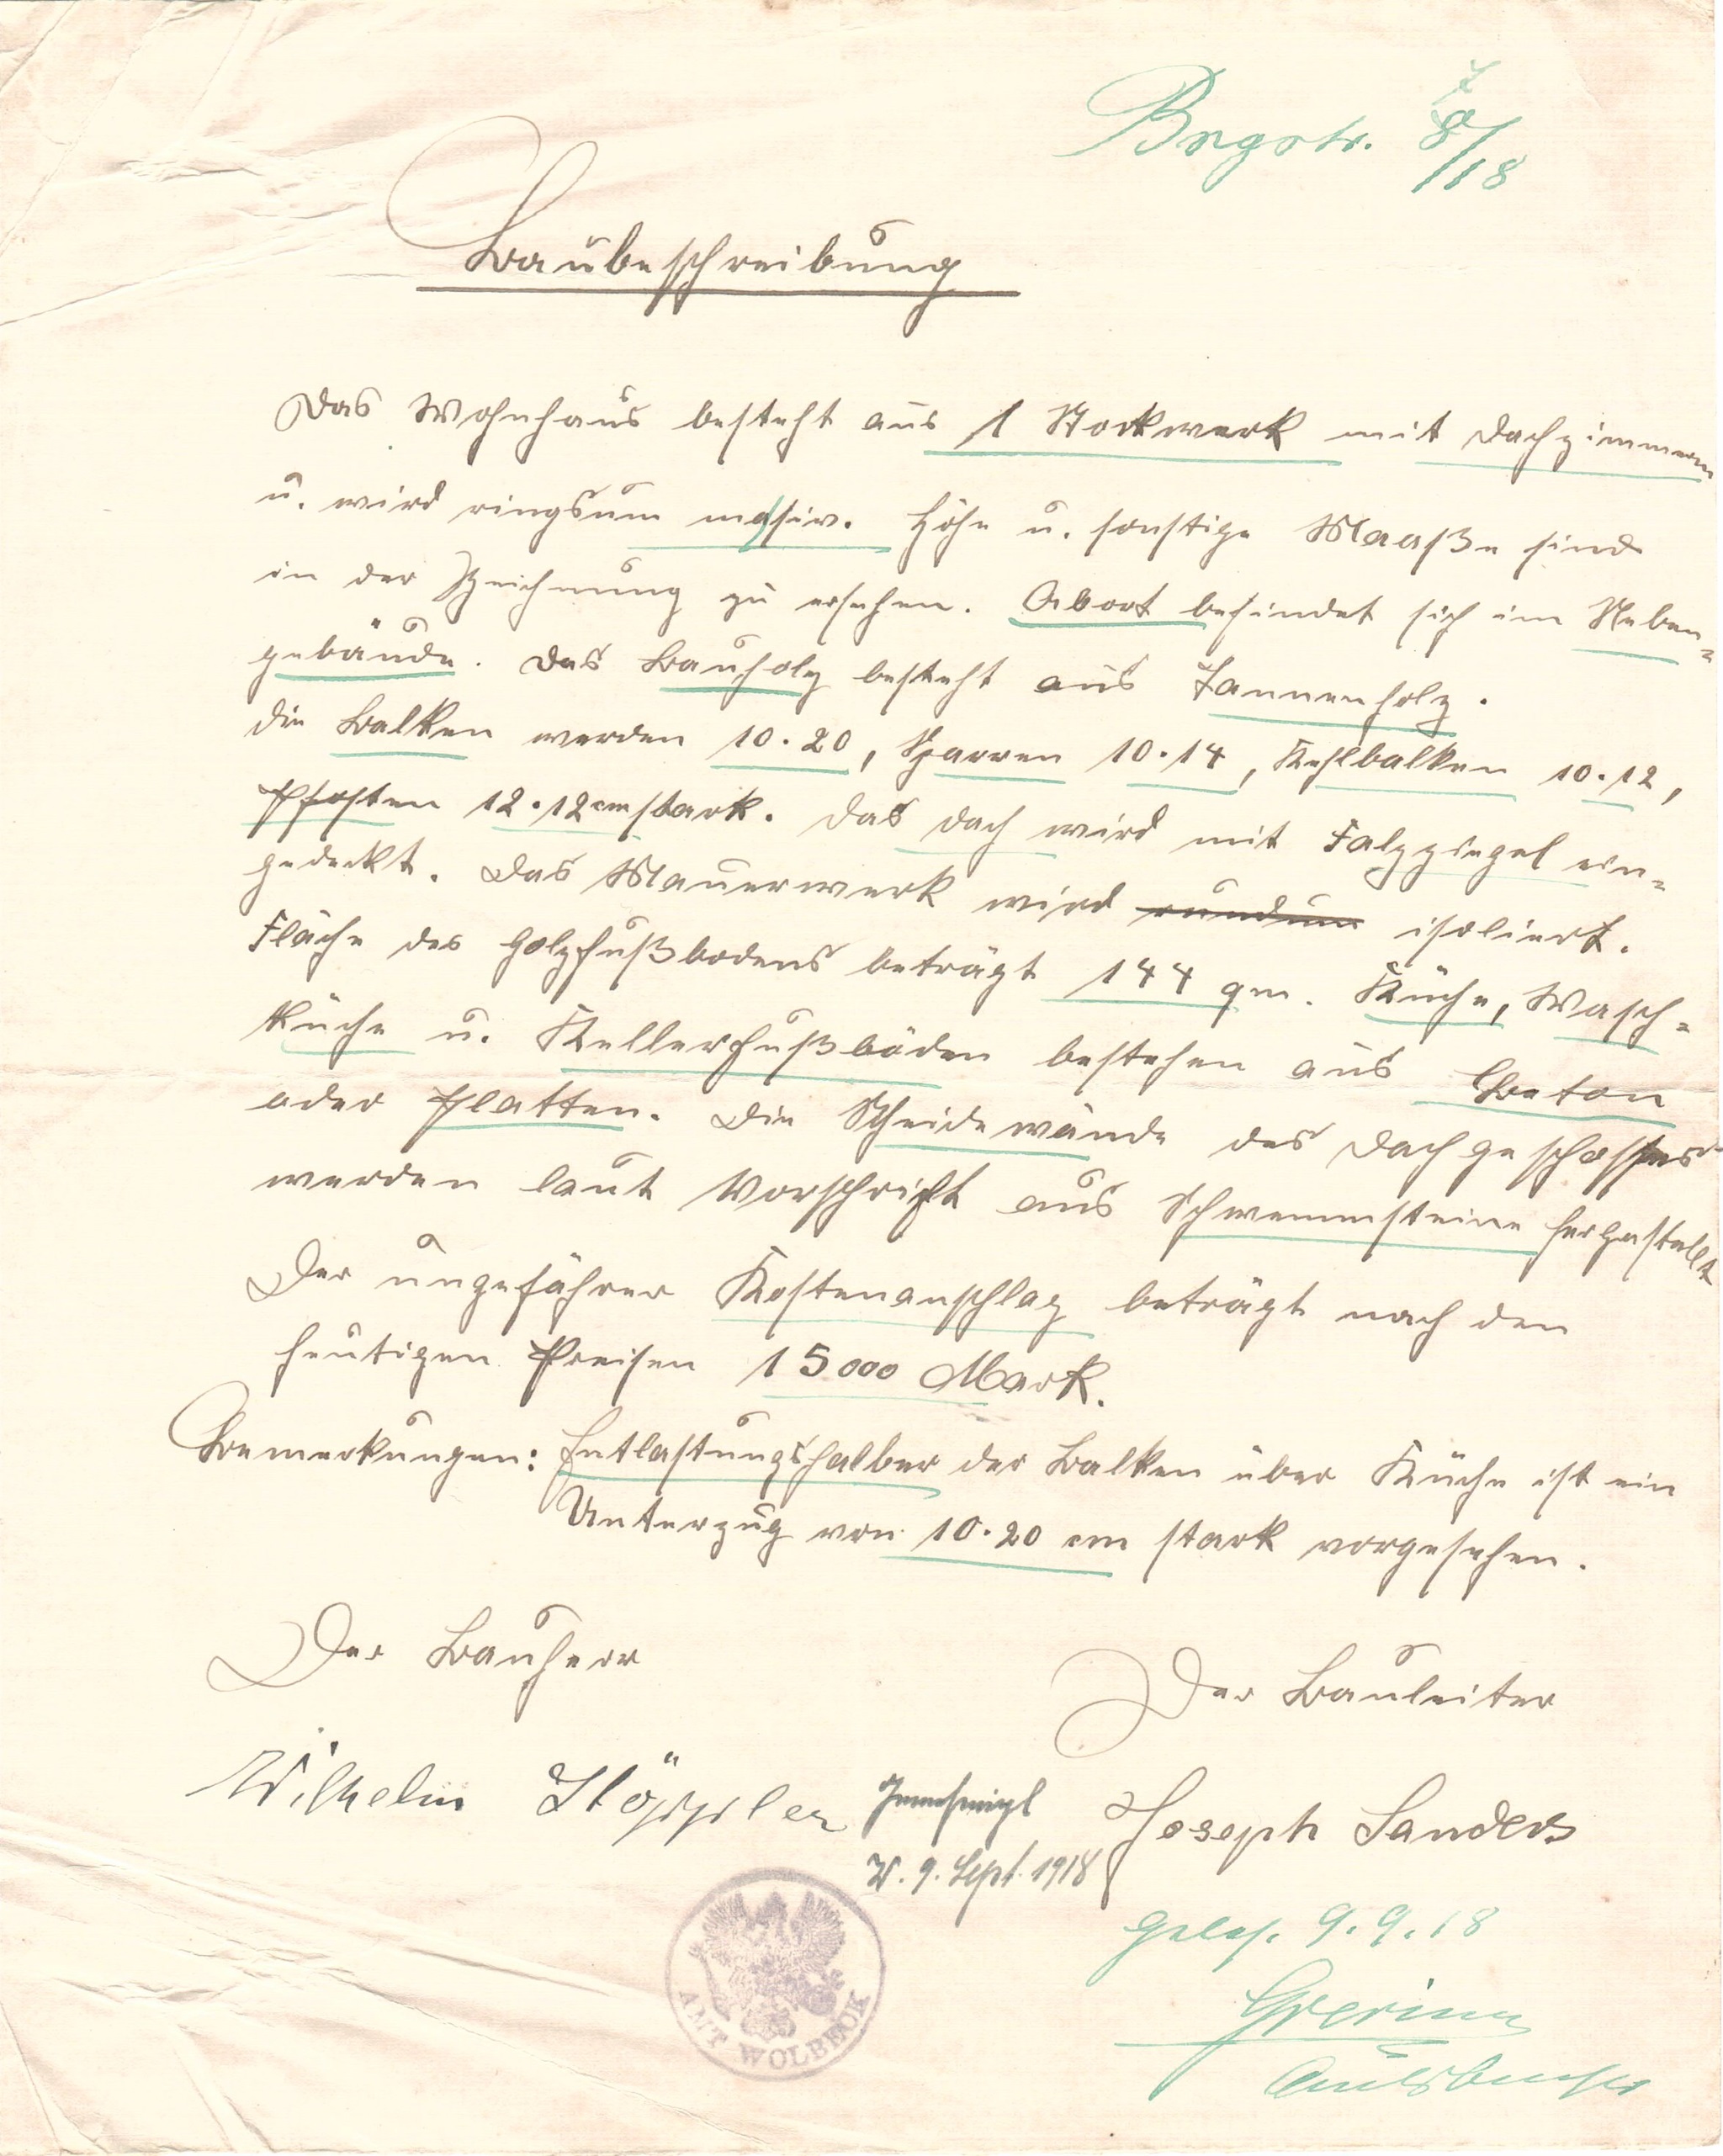 Bngstr. 8/18
Baubeschreibung
Das Wohnhaus besteht aus 1 Stockwerk mit Dachzimmern
u. wird ringsum massiv. Höhe u. sonstige Maaße sind
in der Zeichnung zu ersehen. Abort befindet sich im Neben=
gebäude. Das Bauholz besteht aus Tannenholz.
Die Balken werden 10·20, Sparren 10·14, Kehlbalken 10·12,
Pfosten 12·12 cm stark. Das Dach wird mit Falzziegel ein=
gedeckt. Das Mauerwerk wird rundum isoliert.
Fläche des Holzfußbodens beträgt 144 qm. Küche, Wasch=
küche u. Kellerfußböden bestehen aus Beton
oder Platten. Die Scheidewände des Dachgeschosses
werden laut Vorschrift aus Schwemmsteine hergestellt
Der ungefährer Kostenanschlag beträgt nach den
heutigen Preisen 15000 Mark.
Bemerkungen: Entlastungshalber der Balken über Küche ist ein
Unterzug von 10·20 cm stark vorgesehen.
Der Bauherr
Der Bauleiter
Wilhelm
Joseph Sanders
W. 9. Sept. 1918
9.9.18
AMT WOLBECK